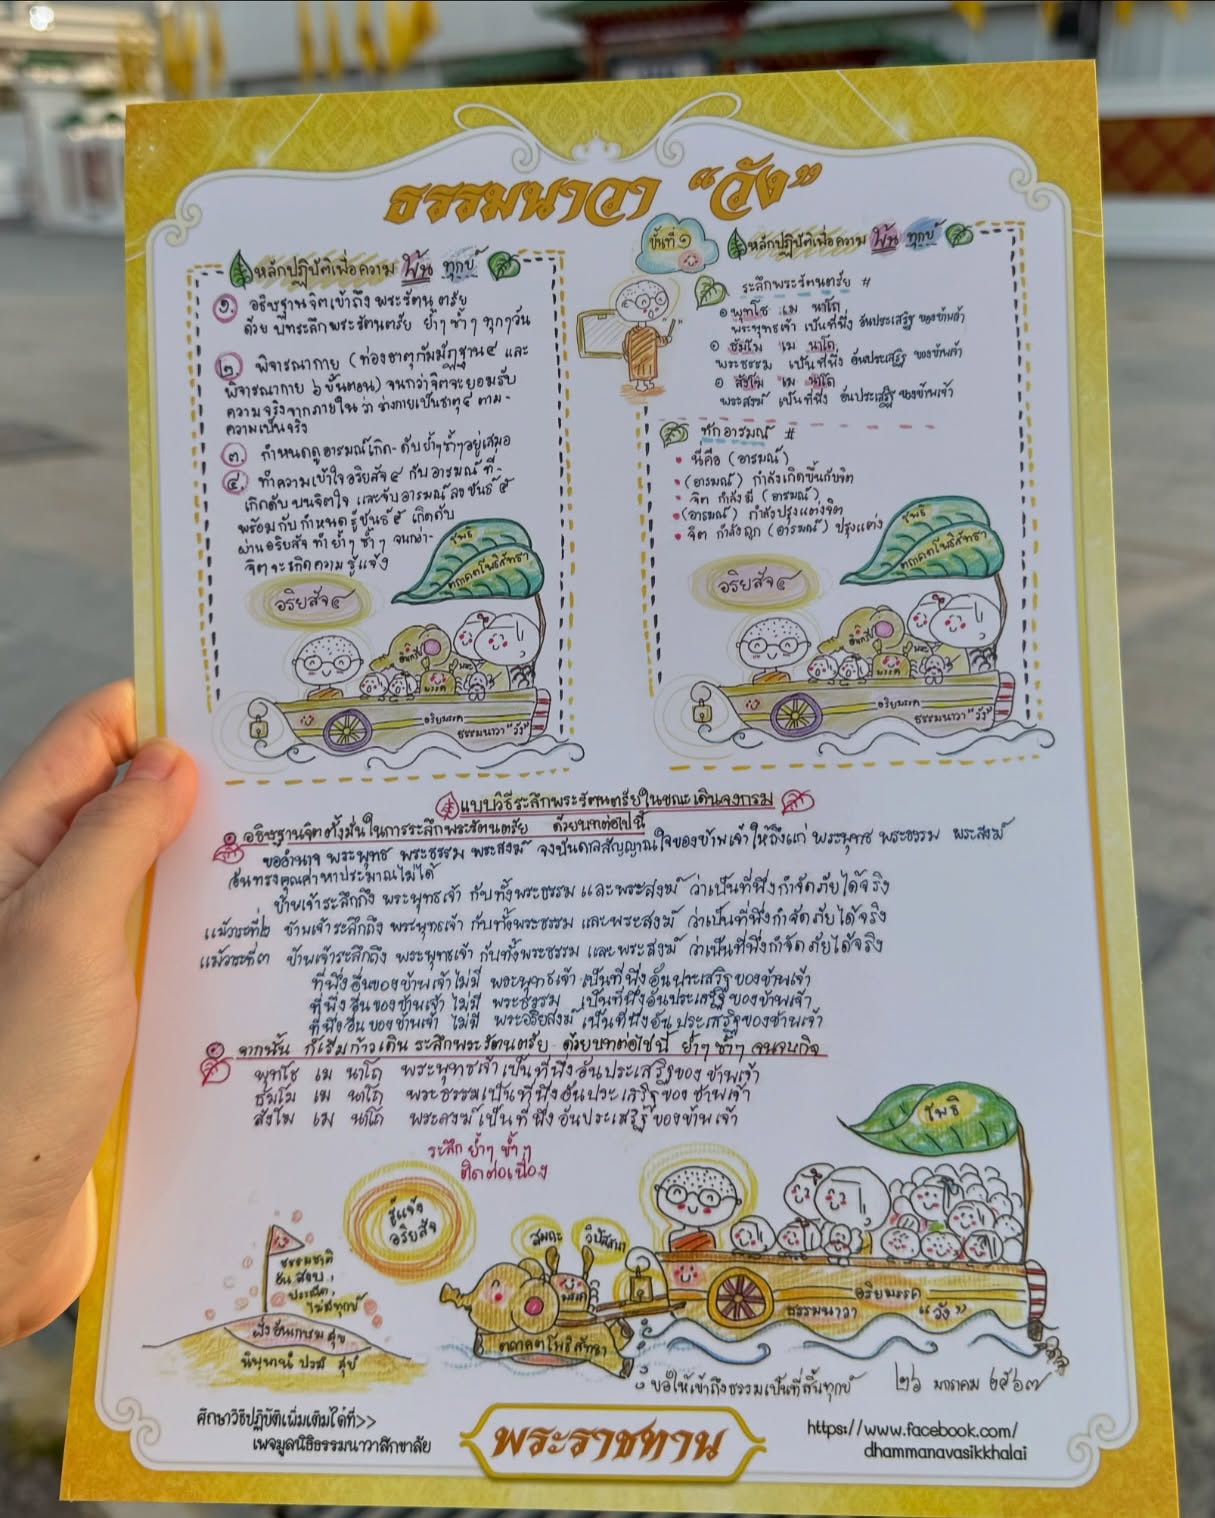 ธรรมนาวา "วัง"
หลักปฏิบัติเพื่อความ พ้น ทุกข์
๑. อธิษฐานจิตเข้าถึง พระรัตนตรัย
ด้วย บทระลึกพระรัตนตรัย ย้ำๆ ซ้ำๆ ทุกๆวัน
๒ พิจารณากาย (ท่องธาตุกัมมัฏฐาน๔ และ
พิจารณากาย ๖ ขั้นตอน) จนกว่าจิตจะยอมรับ
ความจริงจากภายใน ว่า ร่างกายเป็นธาตุ๔ ตาม-
ความเป็นจริง
๓. กำหนดดูอารมณ์เกิด-ดับย้ำๆซ้ำๆอยู่เสมอ
๔. ทำความเข้าใจอริยสัจ๔ กับอารมณ์ ที่-
เกิดดับ บนจิตใจ และจับอารมณ์ลงขันธ์ ๕
พร้อมกับ กำหนดรู้ขันธ์ ๕ เกิดดับ
ผ่านอริยสัจ ทำย้ำๆ ซ้ำๆ จนกว่า-
จิตจะเกิดความ รู้แจ้ง
อริยสัจ๔
โพธิ
ตถาคตโพธิสัทธา
อินทรีย์
พละ
มรรค
อริยมรรค
ธรรมนาวา "วัง"
ขั้นที่ ๑
หลักปฏิบัติเพื่อความ พ้น ทุกข์
ระลึกพระรัตนตรัย #
๑ พุทโธ เม นาโถ
พระพุทธเจ้า เป็นที่พึ่ง อันประเสริฐ ของข้าพเจ้า
๑ ธัมโม เม นาโถ
พระธรรม เป็นที่พึ่ง อันประเสริฐ ของข้าพเจ้า
๑ สังโฆ เม นาโถ
พระสงฆ์ เป็นที่พึ่ง อันประเสริฐ ของข้าพเจ้า
ทักอารมณ์ #
• นี่คือ (อารมณ์)
• (อารมณ์) กำลังเกิดขึ้นกับจิต
• จิต กำลังมี (อารมณ์)
• (อารมณ์) กำลังปรุงแต่งจิต
• จิต กำลังถูก (อารมณ์) ปรุงแต่ง
อริยสัจ๔
โพธิ
ตถาคตโพธิสัทธา
อินทรีย์
พละ
มรรค
อริยมรรค
ธรรมนาวา "วัง"
แบบวิธีระลึกพระรัตนตรัยในขณะเดินจงกรม
อธิษฐานจิตตั้งมั่นในการระลึกพระรัตนตรัย ด้วยบทต่อไปนี้
ขออำนาจ พระพุทธ พระธรรม พระสงฆ์ จงบันดาลสัญญาณใจของข้าพเจ้า ให้ถึงแก่ พระพุทธ พระธรรม พระสงฆ์
อันทรงคุณค่าหาประมาณไม่ได้
ข้าพเจ้าระลึกถึง พระพุทธเจ้า กับทั้งพระธรรม และพระสงฆ์ ว่าเป็นที่พึ่งกำจัดภัยได้จริง
แม้วาระที่๒ ข้าพเจ้าระลึกถึง พระพุทธเจ้า กับทั้งพระธรรม และพระสงฆ์ ว่าเป็นที่พึ่งกำจัดภัยได้จริง
แม้วาระที่๓ ข้าพเจ้าระลึกถึง พระพุทธเจ้า กับทั้งพระธรรม และพระสงฆ์ ว่าเป็นที่พึ่งกำจัดภัยได้จริง
ที่พึ่งอื่นของข้าพเจ้าไม่มี พระพุทธเจ้า เป็นที่พึ่งอันประเสริฐของข้าพเจ้า
ที่พึ่งอื่นของข้าพเจ้า ไม่มี พระธรรม เป็นที่พึ่งอันประเสริฐของข้าพเจ้า
ที่พึ่งอื่นของข้าพเจ้า ไม่มี พระอริยสงฆ์ เป็นที่พึ่งอันประเสริฐของข้าพเจ้า
จากนั้น ก็เริ่มก้าวเดิน ระลึกพระรัตนตรัย ด้วยบทต่อไปนี้ ย้ำๆ ซ้ำๆ จนจบกิจ
พุทโธ เม นาโถ พระพุทธเจ้าเป็นที่พึ่งอันประเสริฐของข้าพเจ้า
ธัมโม เม นาโถ พระธรรมเป็นที่พึ่งอันประเสริฐของข้าพเจ้า
สังโฆ เม นาโถ พระสงฆ์เป็นที่พึ่งอันประเสริฐของข้าพเจ้า
ระลึก ย้ำๆ ซ้ำๆ
ติดต่อเนื่อง
โพธิ
รู้แจ้ง
อริยสัจ
สมถะ
วิปัสสนา
มรรค
ธรรมชาติ
อัน สงบ,
ประณีต,
ไม่มีทุกข์
ฝั่งอันเกษม สุข
นิพพานํ ปรมํ สุขํ
ตถาคตโพธิสัทธา
อริยมรรค
ธรรมนาวา "วัง"
ขอให้เข้าถึงธรรมเป็นที่สิ้นทุกข์ ๒๖ มกราคม ๒๕๖๗
ศึกษาวิธีปฏิบัติเพิ่มเติมได้ที่>>
เพจมูลนิธิธรรมนาวาสิกขาลัย
พระราชทาน
https://www.facebook.com/
dhammanavasikkhalai